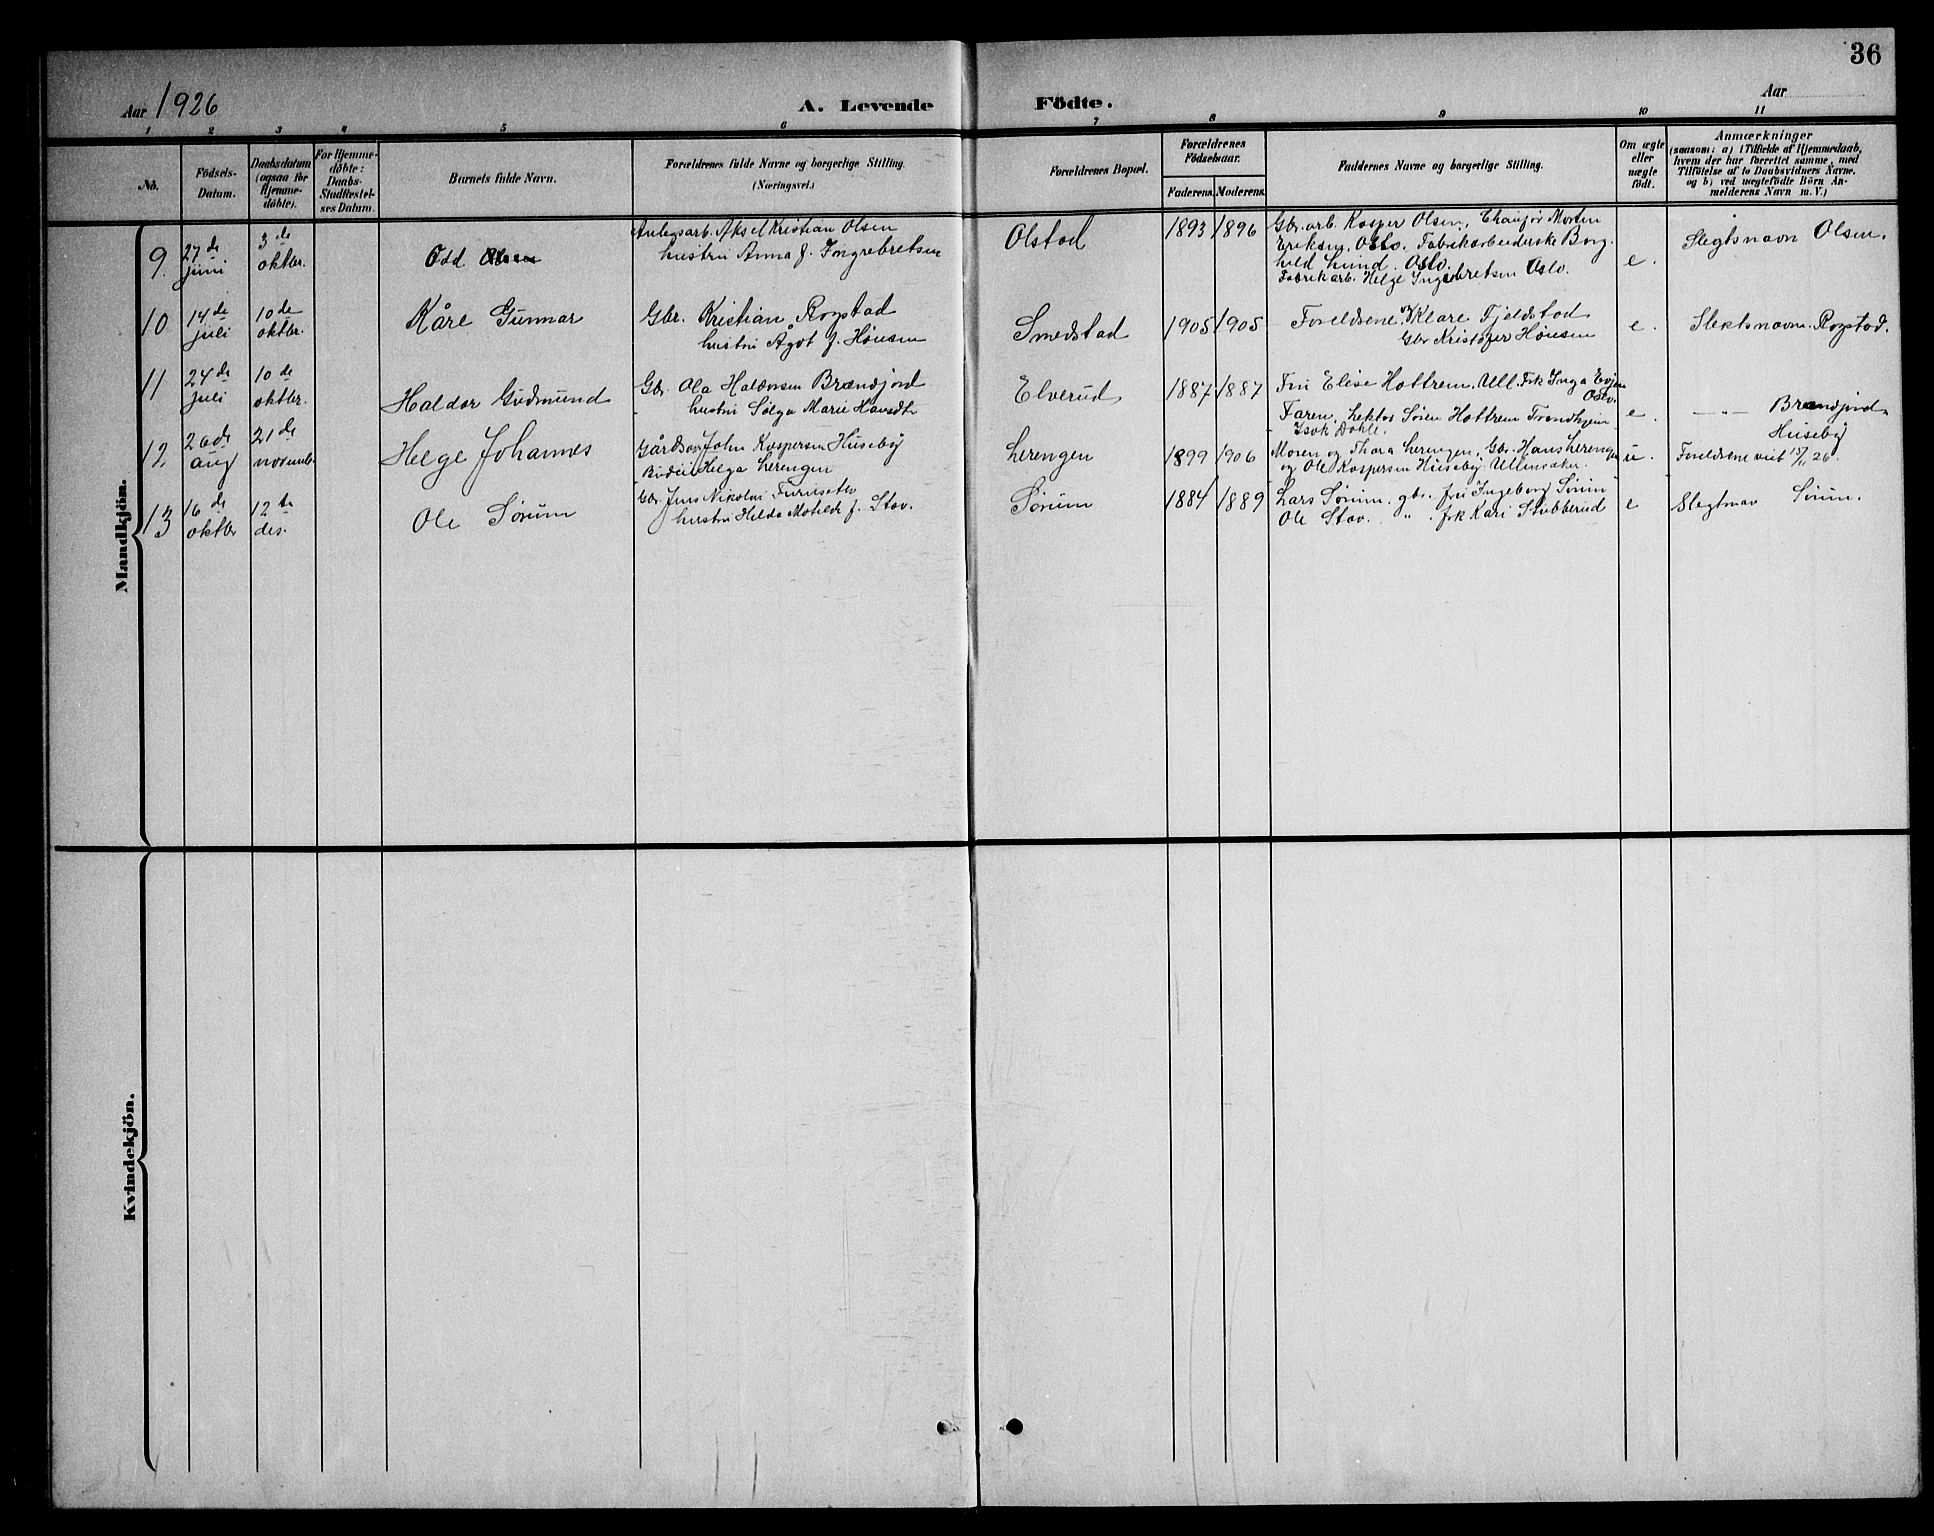 36
Aar 1926
A. Levende Födte.
Aar
1 2 3 4 5 6 7 8 9 10 11
No.
Födsels-Datum.
Daabsdatum (ogsaa for Hjemme-döbte).
For Hjemme-döbte: Daabs-Stadfæstel-ses Datum.
Barnets fulde Navn.
Forældrenes fulde Navne og borgerlige Stilling.
(Næringsvei.)
Forældrenes Bopæl.
Forældrenes Födselsaar.
Faderens. Moderens.
Faddernes Navne og borgerlige Stilling.
Om ægte eller uægte födt.
Anmærkninger
(saasom: a) i Tilfælde af Hjemmedaab,
hvem der har forrettet samme, med
Tilföielse af to Daabsvidners Navne.
og b) ved uægtefödte Börn An-
melderens Navn m. V.)
Mandkjön.
9. 27de juni 3de oktbr. Odd
Anlegsarb. Aksel Kristian Olsen
hustru Anna f. Ingebretsen
Olstad 1893 1896
Gbr. arb. Kasper Olsen, Chaufør Morten
Eriksen, Oslo. Fabrikarbeiderske Borg
hild Lund. Oslo.
Fabrikarb. Helge Ingebretsen Oslo.
e. Slegtsnavn Olsen.
10 14de juli 10de oktbr. Kåre Gunnar
Gbr. Kristian Rogstad
hustru Ågot f. Hønsen
Smedstad 1905 1905
Foreldrene, Klare Fjeldstad
Gbr Kristofer Hønsen
e. Slektsnavn Rogstad.
11 24de juli 10de oktbr. Haldor Gudmund
Gbr. Ola Haldorsen Brændjord
hustru Solga Marie
Elverud 1887 1887
Fru Elise Hottrem, Ull. Frk Inga
Oslo.
Faren, Lektor Søren Hottrem Trondhjem
Isak Dahle.
e. —"— Brændjord
12. 26de aug 21de novemb. Helge Johannes
Gårdsarb John Kaspersen Huseby
Budeie Helga Lerengen
Lerengen 1899 1906
Moren og Thora Lerengen, Gbr. Hans Lerengen
og Ole Kaspersen Huseby. Ullensaker.
u. Huseby
Foreldrene viet 26.
13 16de oktbr 12te des. Ole Sørum
Gbr. Jens Nikolai Furuseth
hustru Hilda Matilde f. Stav.
Sørum 1884 1889
Lars Sørum. gbr. fru Ingeborg Sørum
Ole Stav. " . frk Kari Stubberud
e Slegtnav Sørum.
Kvindekjön.